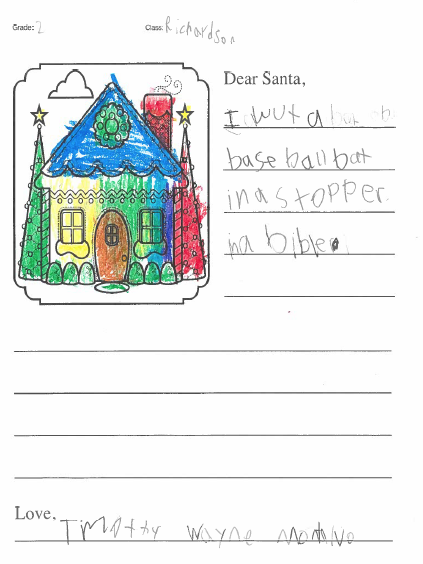 Grade: 2 Class: Richardson
Dear Santa,
I wut a
base ball bat
in a stopper
in a bible
Love, Timothy Wayne